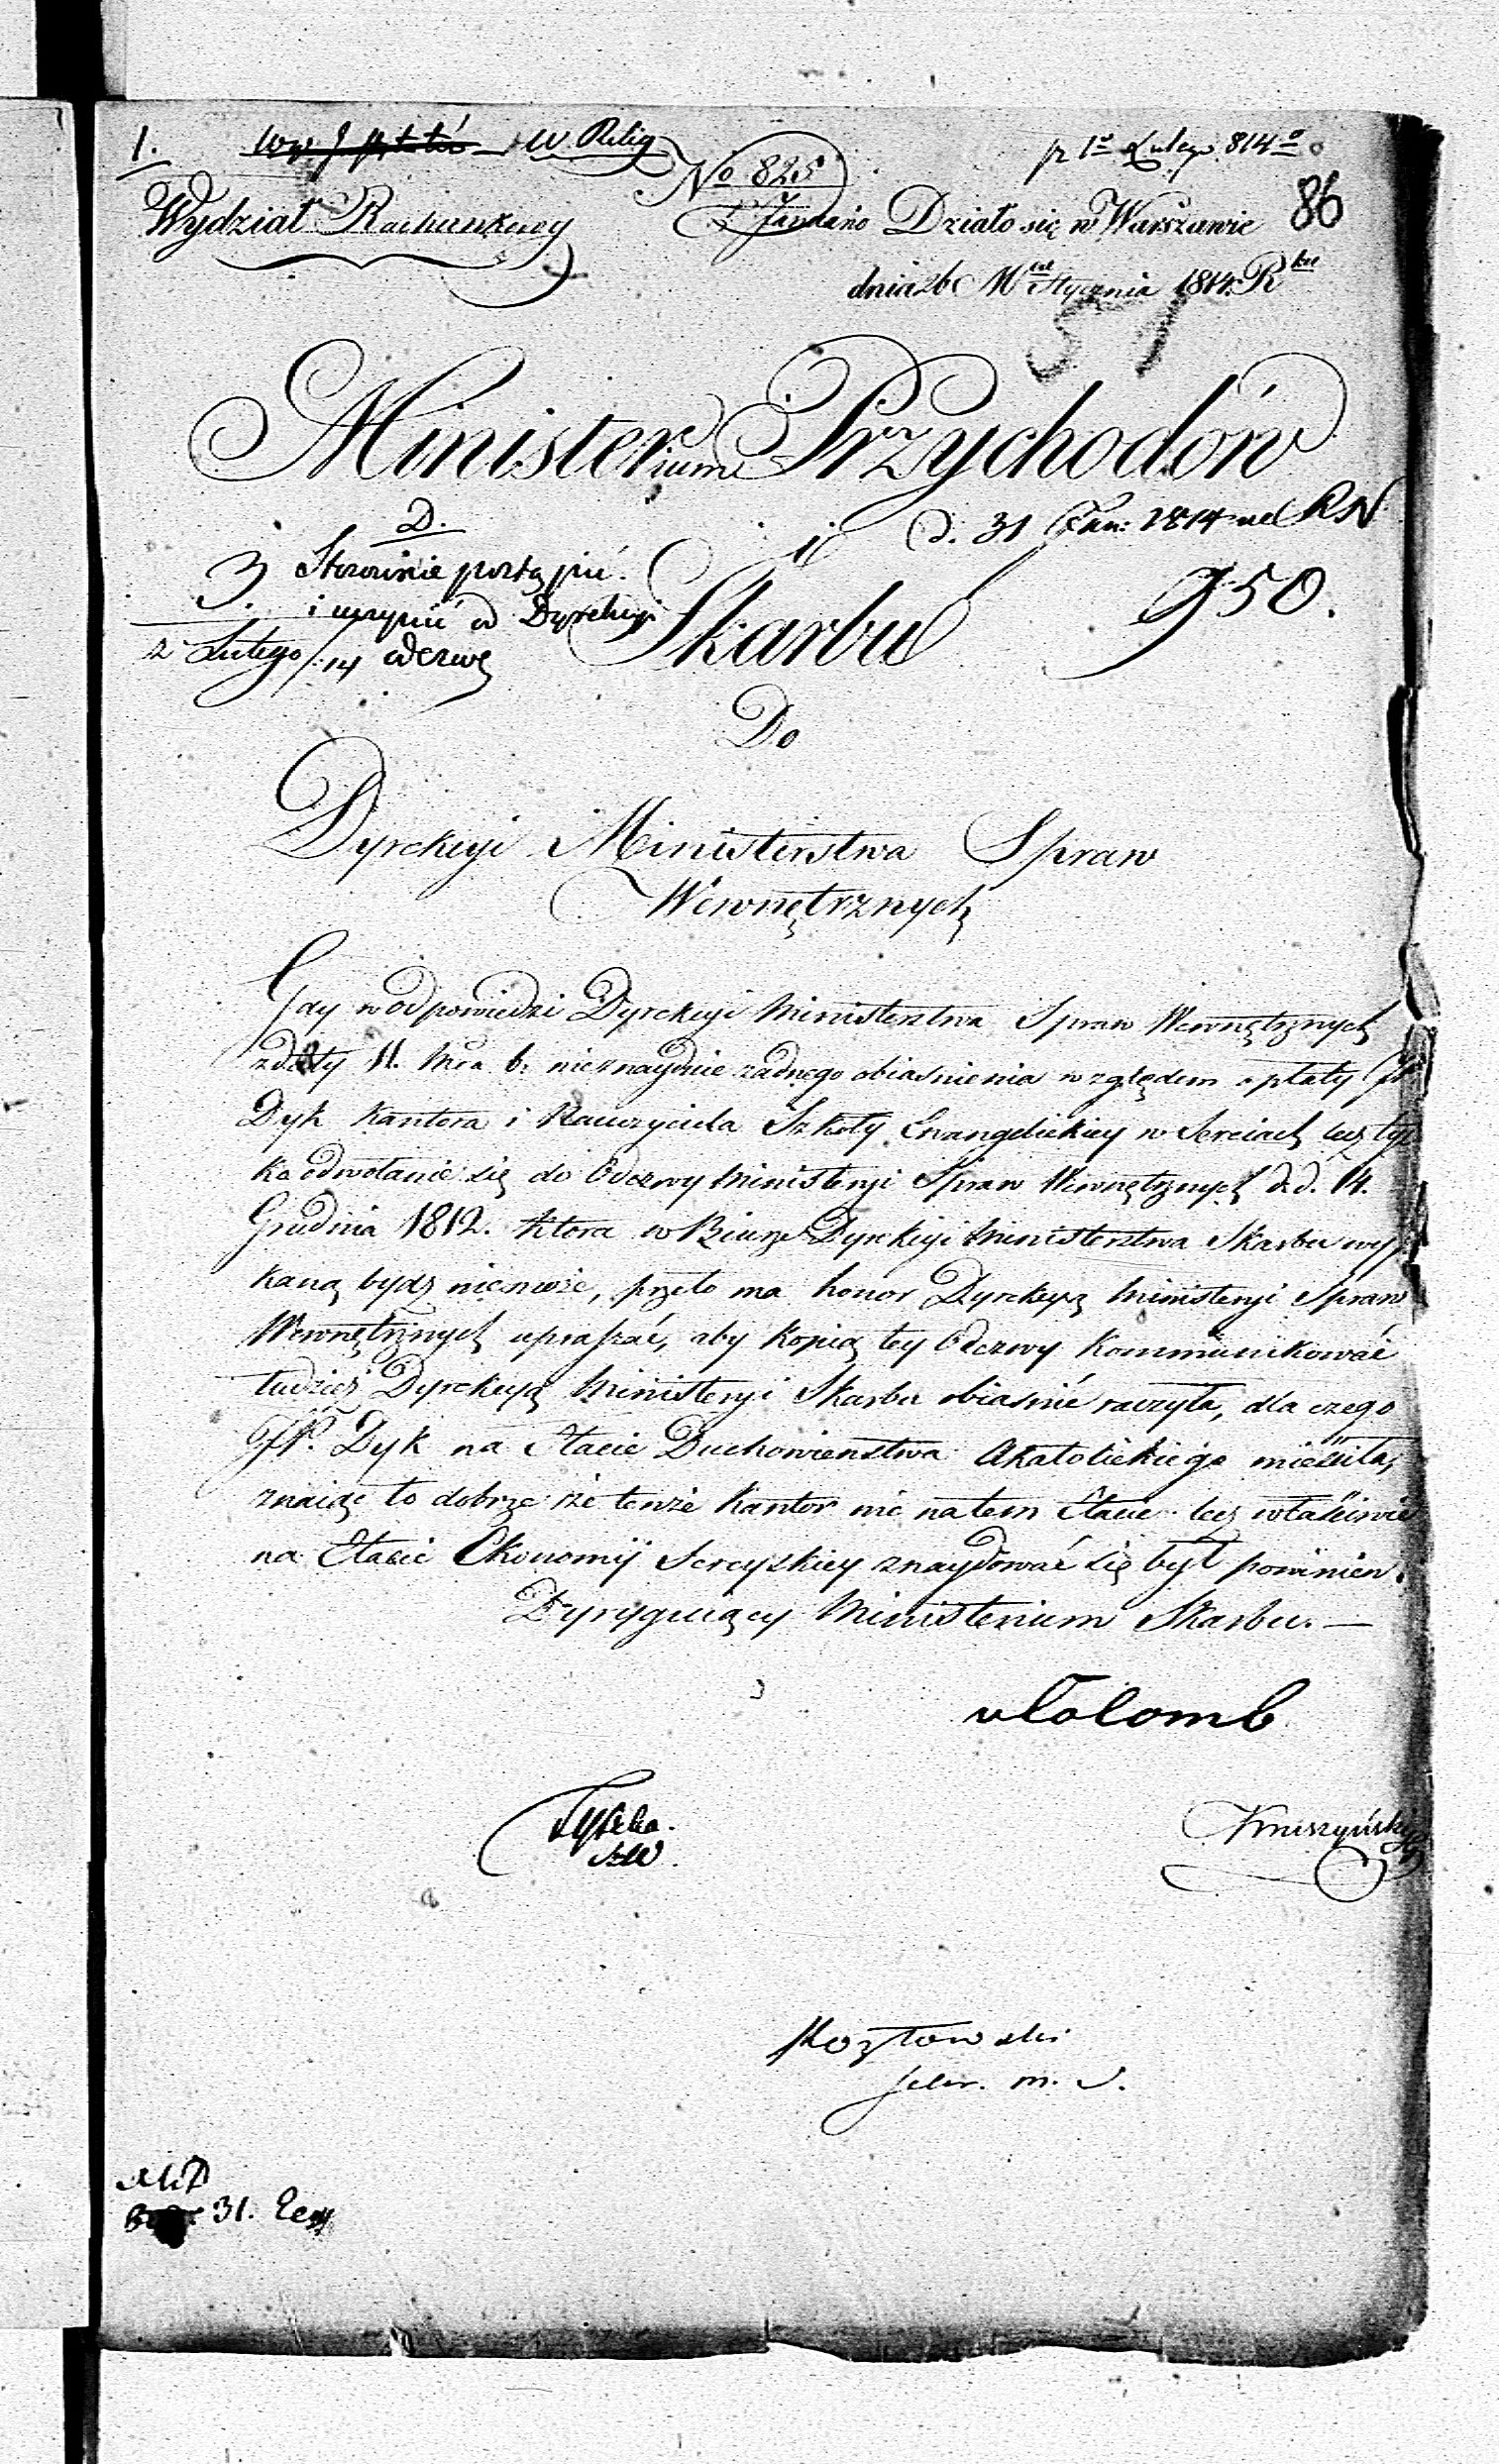 1. W. Relig
No 825
pr 1o Lutego 814o
86
Wydział Rachunkowy
Działo się w Warszawie
dnia 26 Mca Stycznia 1814. Rku
57
Ministerium Przychodów
i
d. 31 1814
Skarbu
950.
D.
Stosownie postąpić.
i od Dyrekcyi
2 Lutego /14
Do
Dyrekcyi Ministerstwa Spraw
Wewnętrznych
Gdy w odpowiedzi Dyrekcyi Ministerstwa Spraw Wewnętrznych
z daty 11. Mca b. nieznayduie żadnego obiaśnienia względem opłaty JP.
Dyk Kantora i Nauczyciela Szkoły Ewangelickiey w Sereiach lecz tyl
ko odwołanie się do Odezwy Ministeryi Spraw Wewnętrznych d.d. 14.
Grudnia 1812. która w Biurze Dyrekcyi Ministerstwa Skarbu wys
kaną bydź niemoże, przeto ma honor Dyrekcyą Ministeryi Spraw
Wewnętrznych upraszać, aby kopią tey Odezwy kommunikować
tudzież Dyrekcyą Ministeryi Skarbu obiaśnić raczyła, dla czego
JP. Dyk na Etacie Duchowieństwa Akatolickiego mieściła,
znaiąc to dobrze że tenże Kantor nie na tem Etacie lecz właściwie
na Etacie Ekonomij Sereyskiey znaydować się był powinien.
Dyrygujący Ministerium Skarbu. —
Colomb
Kozłowski
m. S.
31.